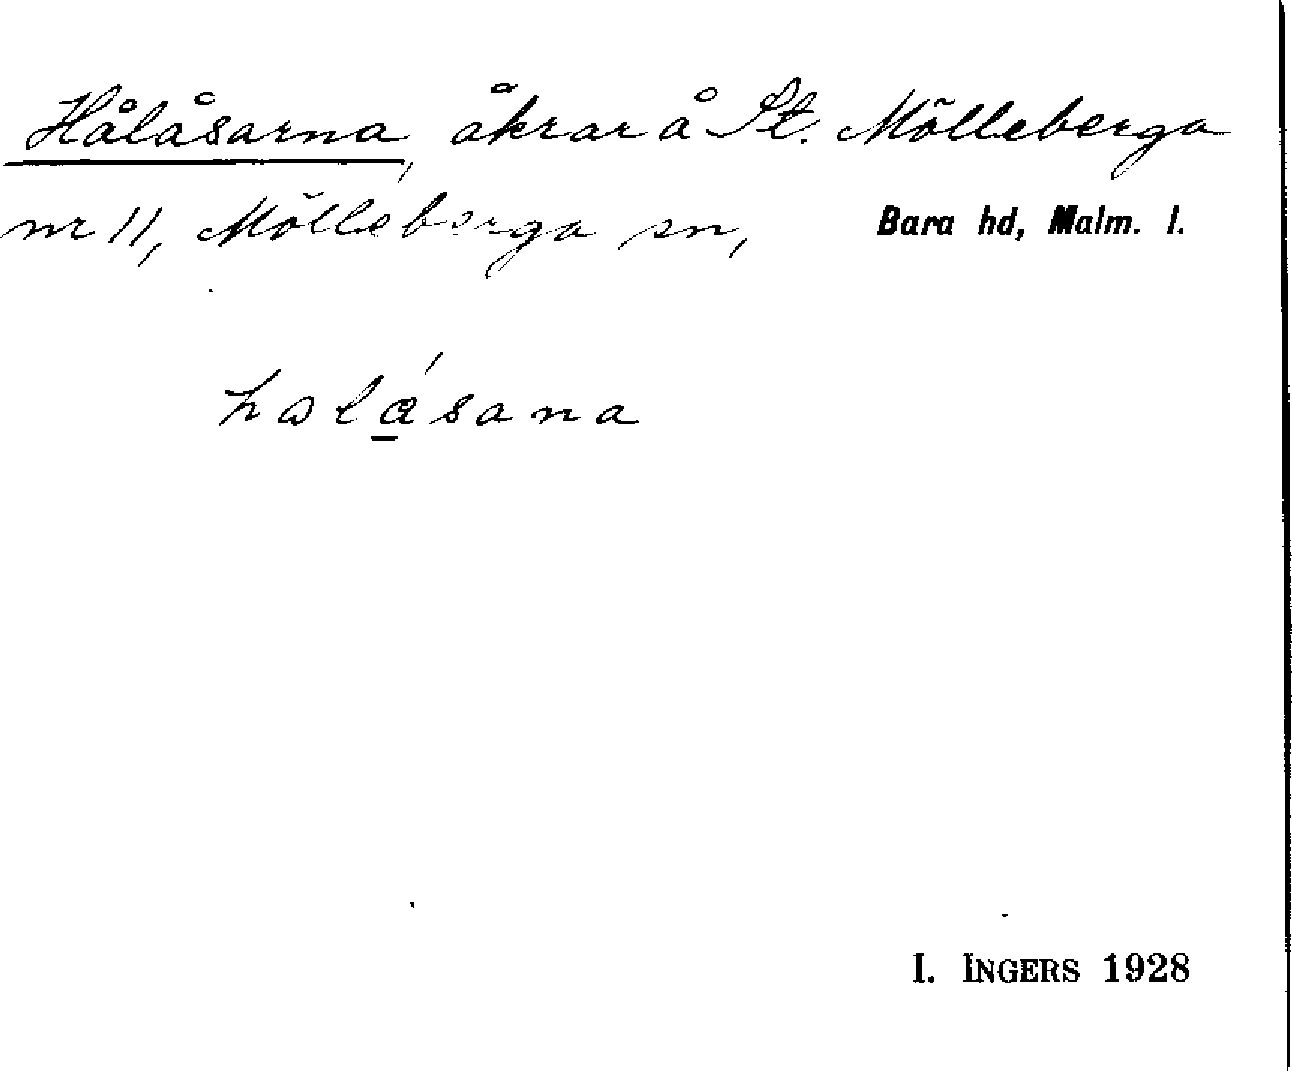 Hålåsarna, åkrar å St. Mölleberga
nr 11, Mölleberga sn, Bara hd, Malm. l.
halása​na
I. INGERS 1928